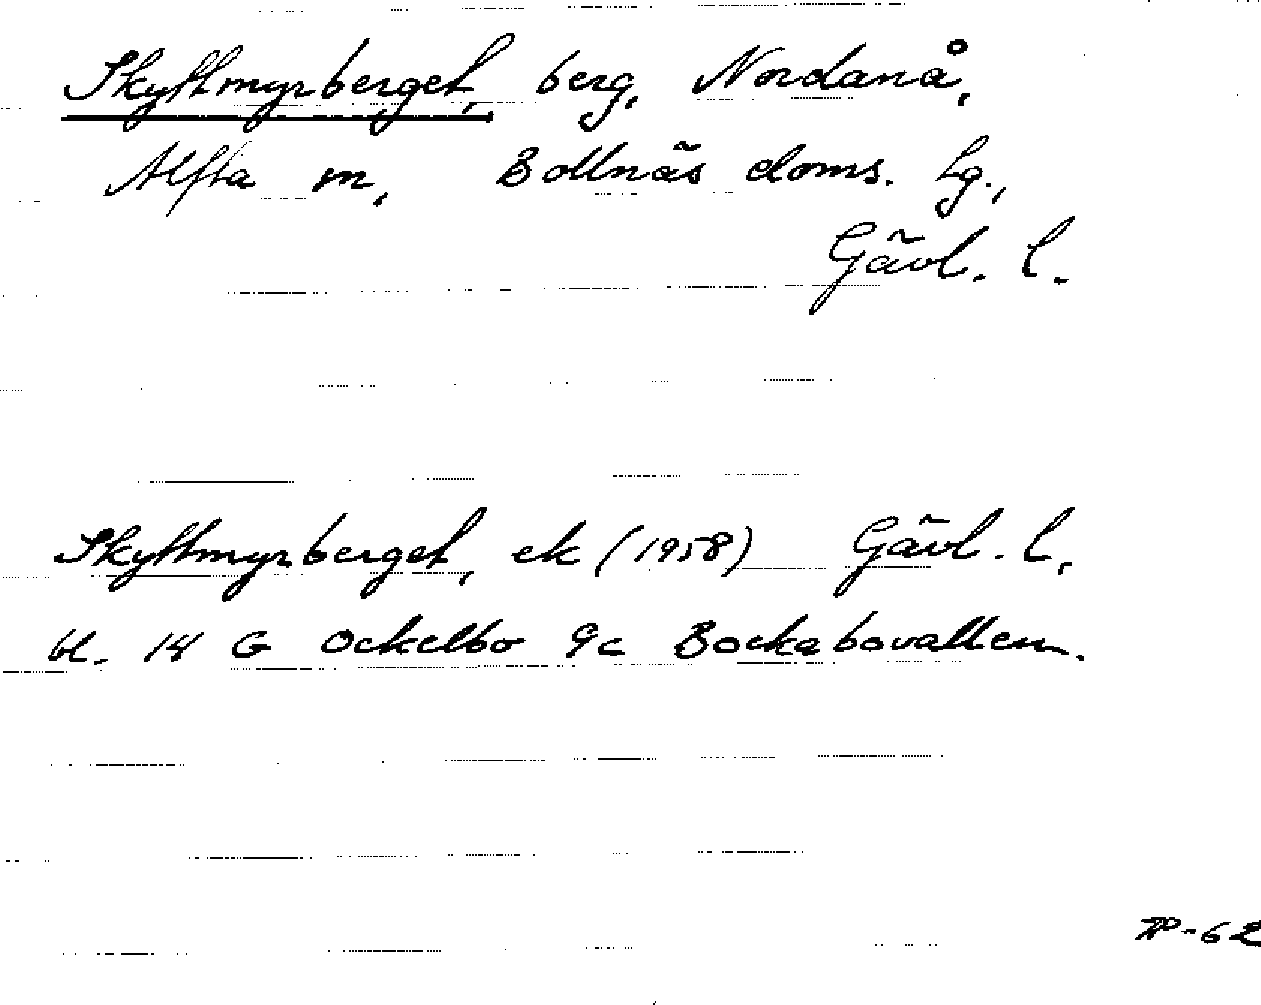 Skyttmyrberget, berg, Nordanå,
Alfta sn, Bollnäs doms. lg.,
Gävl. l.
Skyttmyrberget, ek (1958) Gävl. l.
bl. 14 G Ockelbo 9c Bockabovallen.
-62